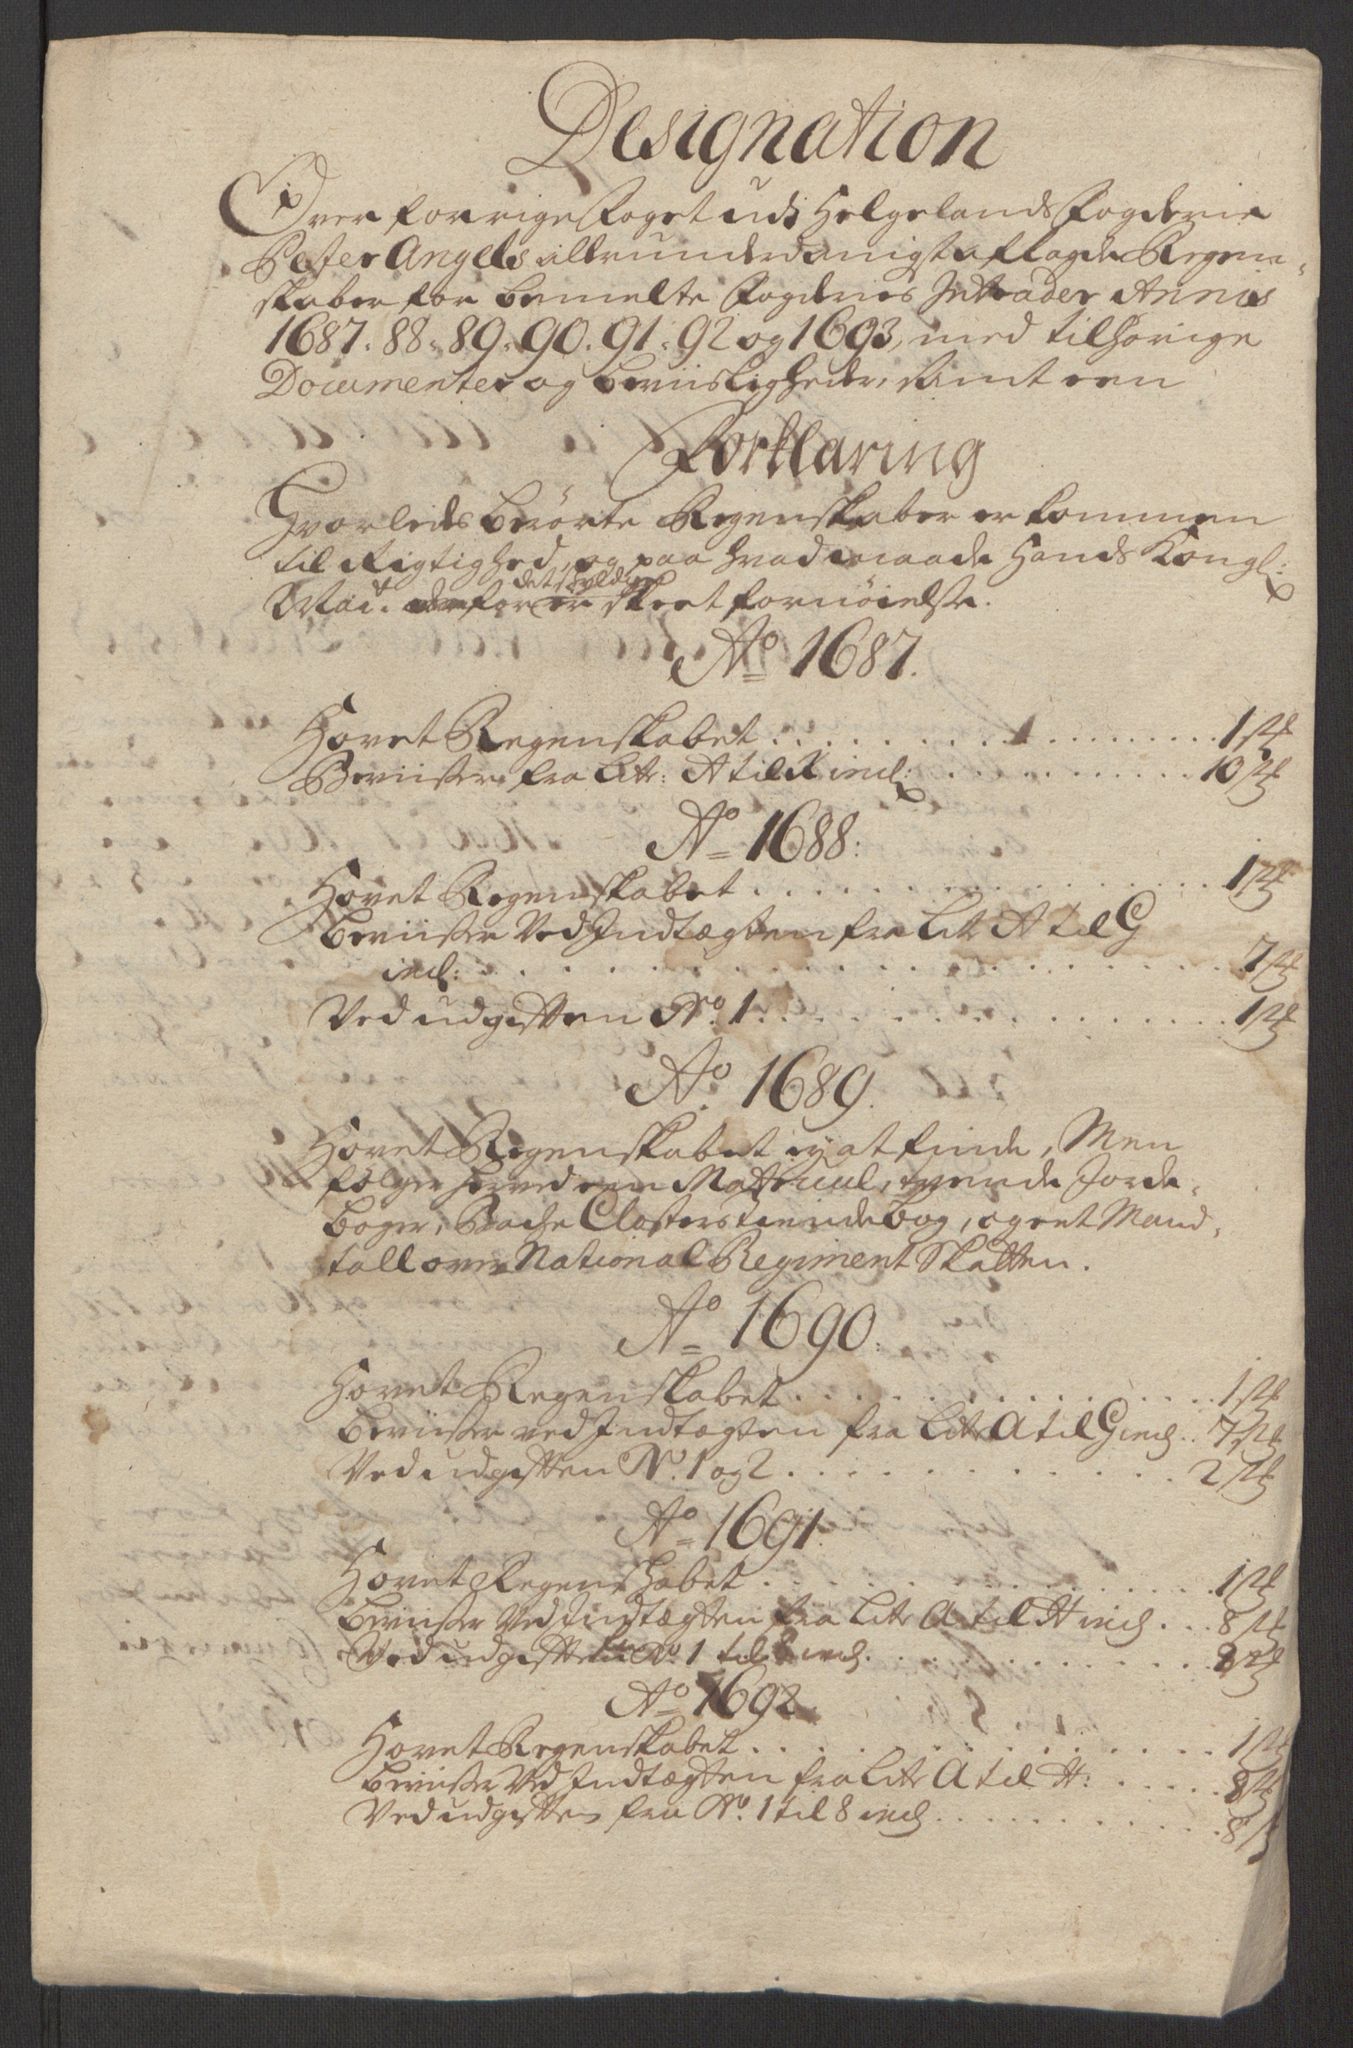 Designation
Over forrige Foget udj Helgelands Fogderie
Peter Angels allerunderdanigst aflagde Regen-
skaber for bemelte Fogderies Intrader Annis
1687. 88. 89. 90. 91. 92 og 1693, med tilhørige
Documenter og beviisligheder, samt een
Forklaring
Hvorleds berørte Regenskaber er kommen
til Rigtighed, og paa hvad maade Hands Kongl:
Mait. derfor det skyldige er skeet fornøielse.
Ao 1687.
Hovet Regenskabet . . . . 1 stk
Beviiser fra Litr: A til K incl: . . . . 10 stk
Ao 1688:
Hovet Regenskabet . . . . 1 stk
Beviiser Ved Indtægten fra Litr A til G
incl: . . . . 7 stk
Ved udgiften No. 1 . . . . 1 stk
Ao 1689.
Hovet Regenskabet ey at finde, Men
følger herved een Matricul, tvende Jorde-
bøger, Bache Closters tiendebog, og eet Mand-
tall over National Regiment Skatten.
Ao 1690:
Hovet Regenskabet . . . . 1 stk
Beviiser ved Indtægten fra Litr A til G incl. . 7 stk
Ved udgiften No. 1 og 2 . . . . 2 stk
Ao 1691.
Hovet Regenskabet . . . . 1 stk
Beviiser Ved Indtægten fra Litr A til H incl. . . 8 stk
Ved udgiften No. 1 til 8 incl. . . . 8 stk
Ao 1692.
Hovet Regenskabet . . . . 1 stk
Beviiser Ved Indtægten fra Litr A til H: . . . . 8 stk
Ved udgiften fra No. 1 til 8 incl. . . . 8 stk